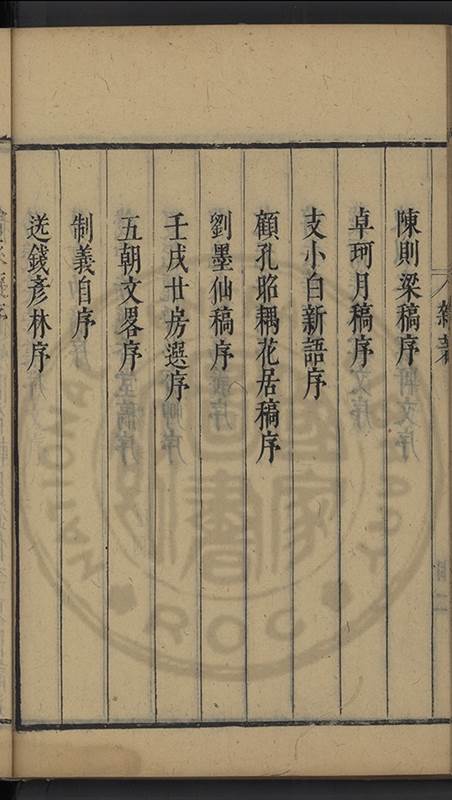 陳則梁稿序
卓珂月稿序
支小白新語序
顧孔昭耦花居稿序
劉墨仙稿序
壬戌廿房選序
五朝文畧序
制義自序
送錢彥林序